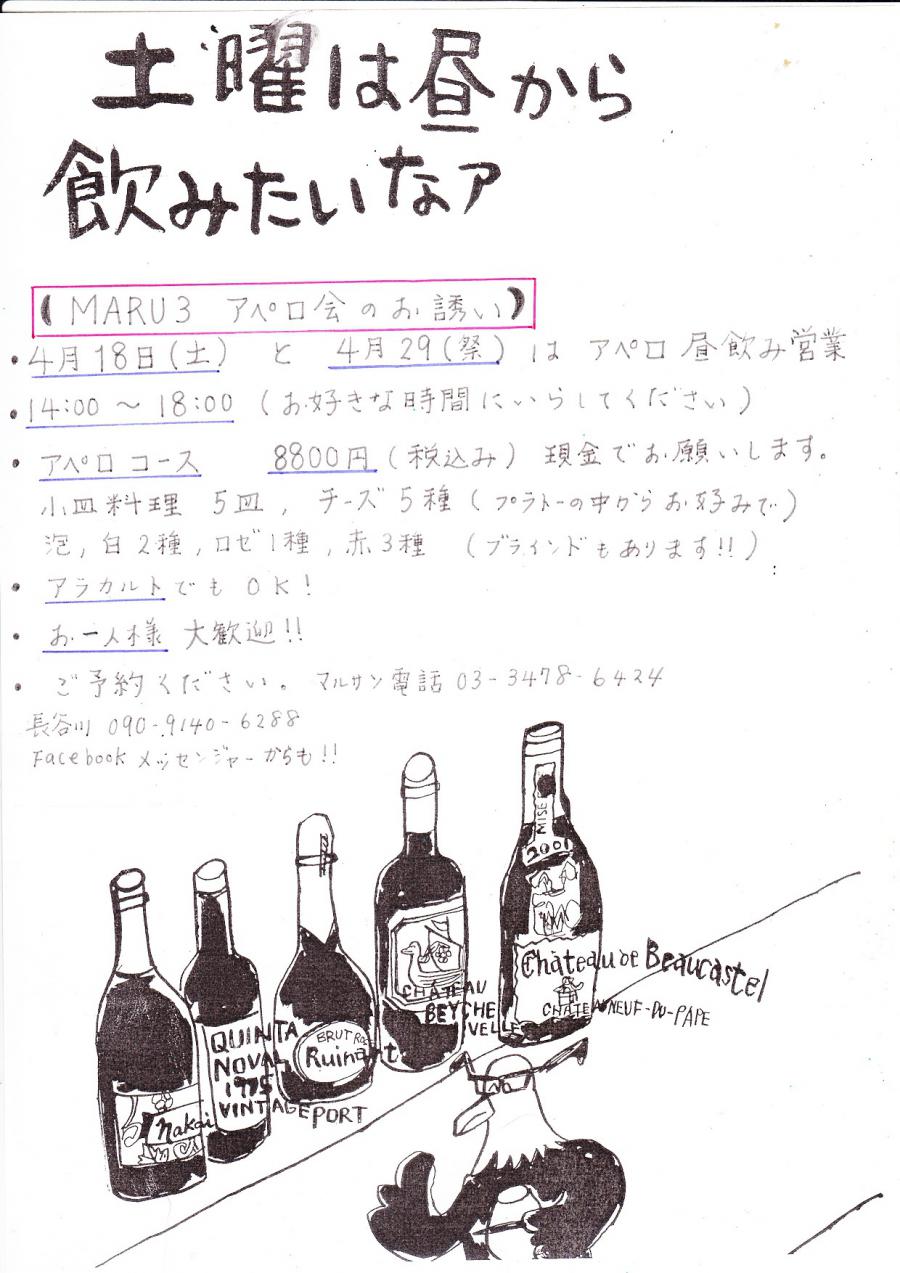 土曜は昼から
飲みたいなァ
(MARU3 アペロ会のお誘い)
・4月18日(土) と 4月29(祭) は アペロ 昼飲み営業
・14:00 〜 18:00 (お好きな時間にいらしてください)
・アペロ コース 8800円(税込み) 現金でお願いします。
小皿料理 5皿, チーズ5種(プラトーの中からお好みで)
泡, 白2種, ロゼ1種, 赤3種 (ブラインドもあります!!)
・アラカルトでも OK!
・お一人様 大歓迎!!
・ご予約ください。 マルサン電話 03-3478-6424
長谷川 090-9140-6288
Facebook メッセンジャーからも!!
MISE
2001
Château de Beaucastel
CHÂTEAUNEUF-DU-PAPE
CHÂTEAU
BEYCHE
VELLE
BRUT ROSE
Ruinart
QUINTA
NOVAL
1975
VINTAGE PORT
Nakai